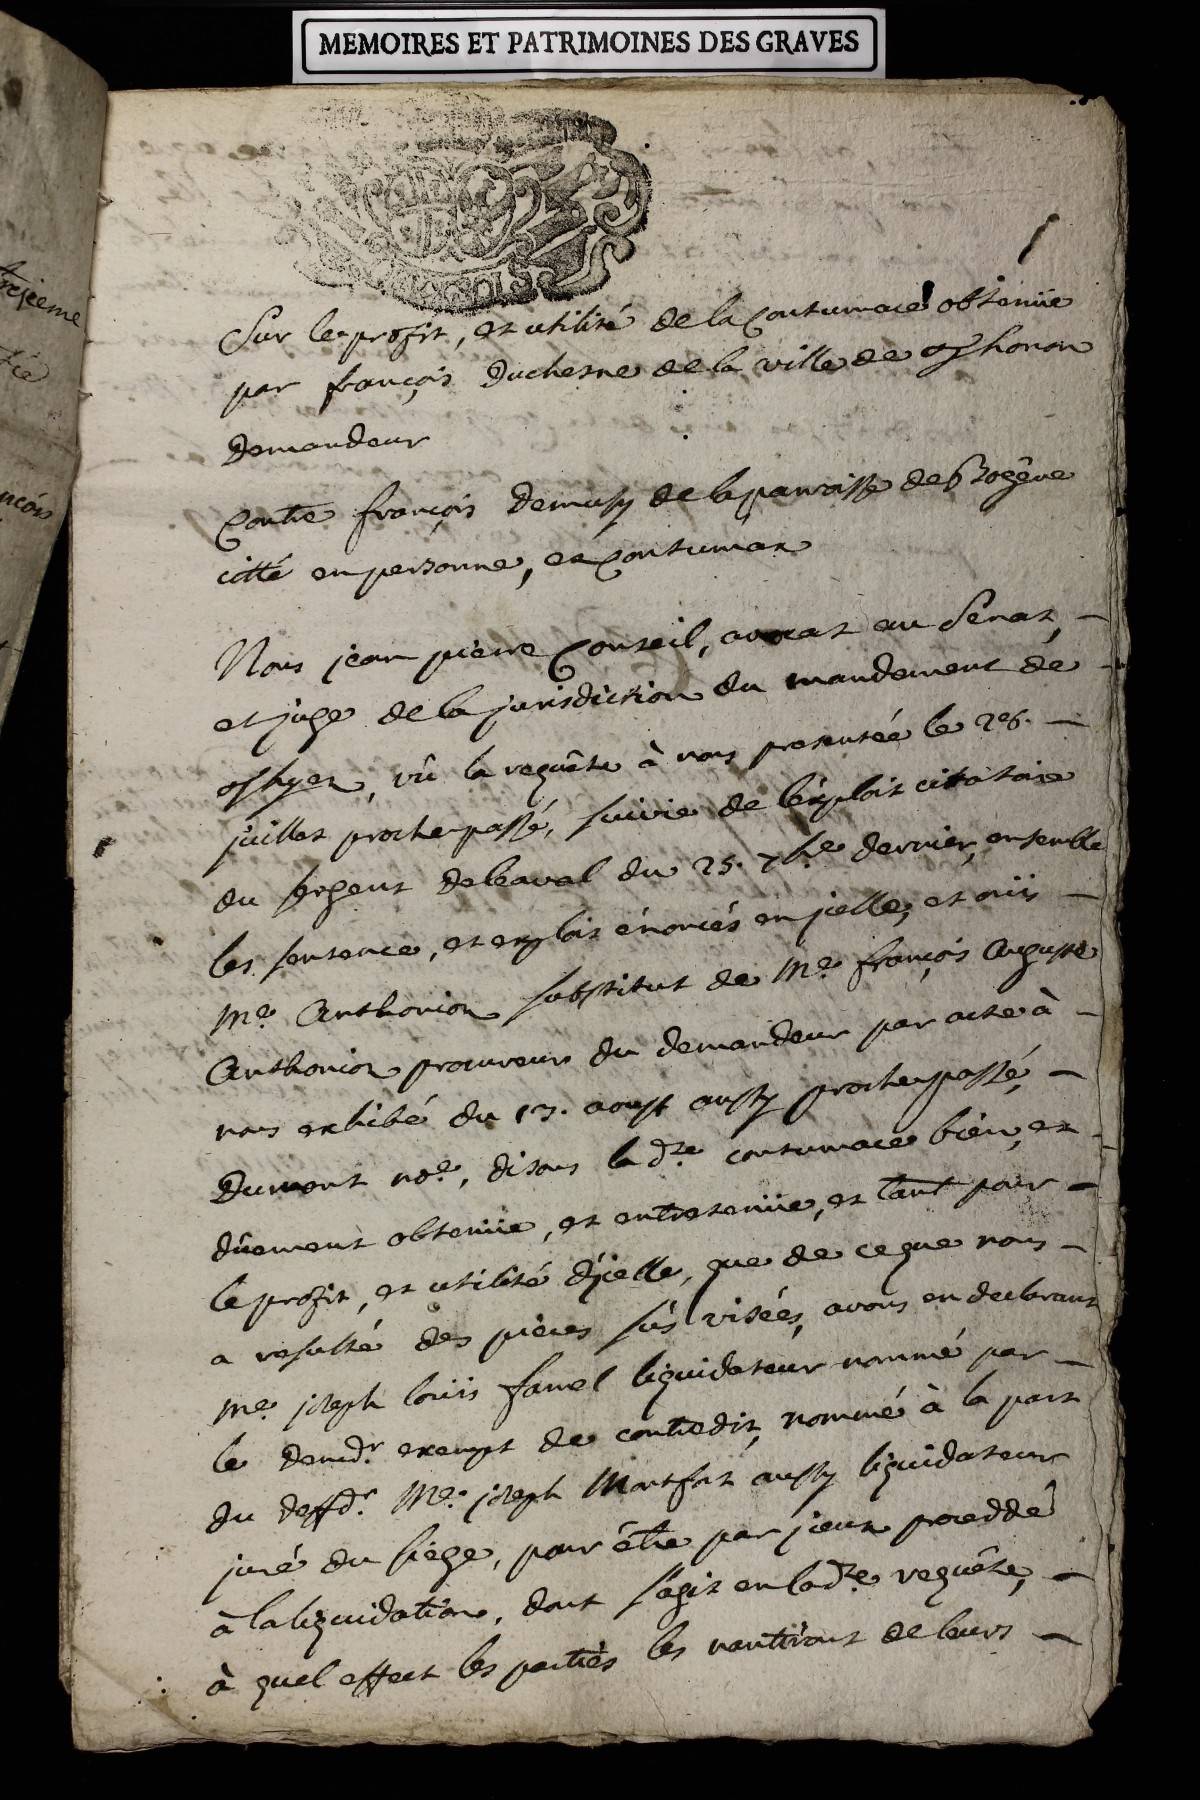 MEMOIRES ET PATRIMOINES DES GRAVES
Sur le profit, et utilité de la Contumace obtenüe
par françois Duchesne de la ville de Thonon
Demandeur
Contre françois Demusy de la parroisse de Bogêve
citté en personne, et Contumax
Nous jean pierre Conseil, avocat au Senat,
et juge de la jurisdiction du mandement de
vû la requête à nous presentée le 26.
juillet proche passé, suivie de l'exploit citatoire
du sergent Deleaval du 25. 7bre dernier, ensemble
les sentence, et exploit énoncés en jcelle, et oüis
Me. Anthonioz substitut de Me. françois Auguste
Anthonioz procureur du demandeur par acte à
nous exhibé du 13. aoust aussy proche passé,
Dumont nore, disons la dte contumace bien, et
düement obtenüe, et entretenüe, et tant pour
le profit, et utilité d'jcelle, que de ce que nous
a resulté des pièces sus visées, avons en declarant
Me. joseph loüis famel liquidateur nommé par
le demdr exempt de contredit, nommé à la part
du deffdr Me. joseph Montfort aussy liquidateur
juré du siège, pour être par jceux proceddé
à la liquidation, dont s'agit en ladte requête,
à quel effect les parties les nantiront de leurs
trejeme
nçois